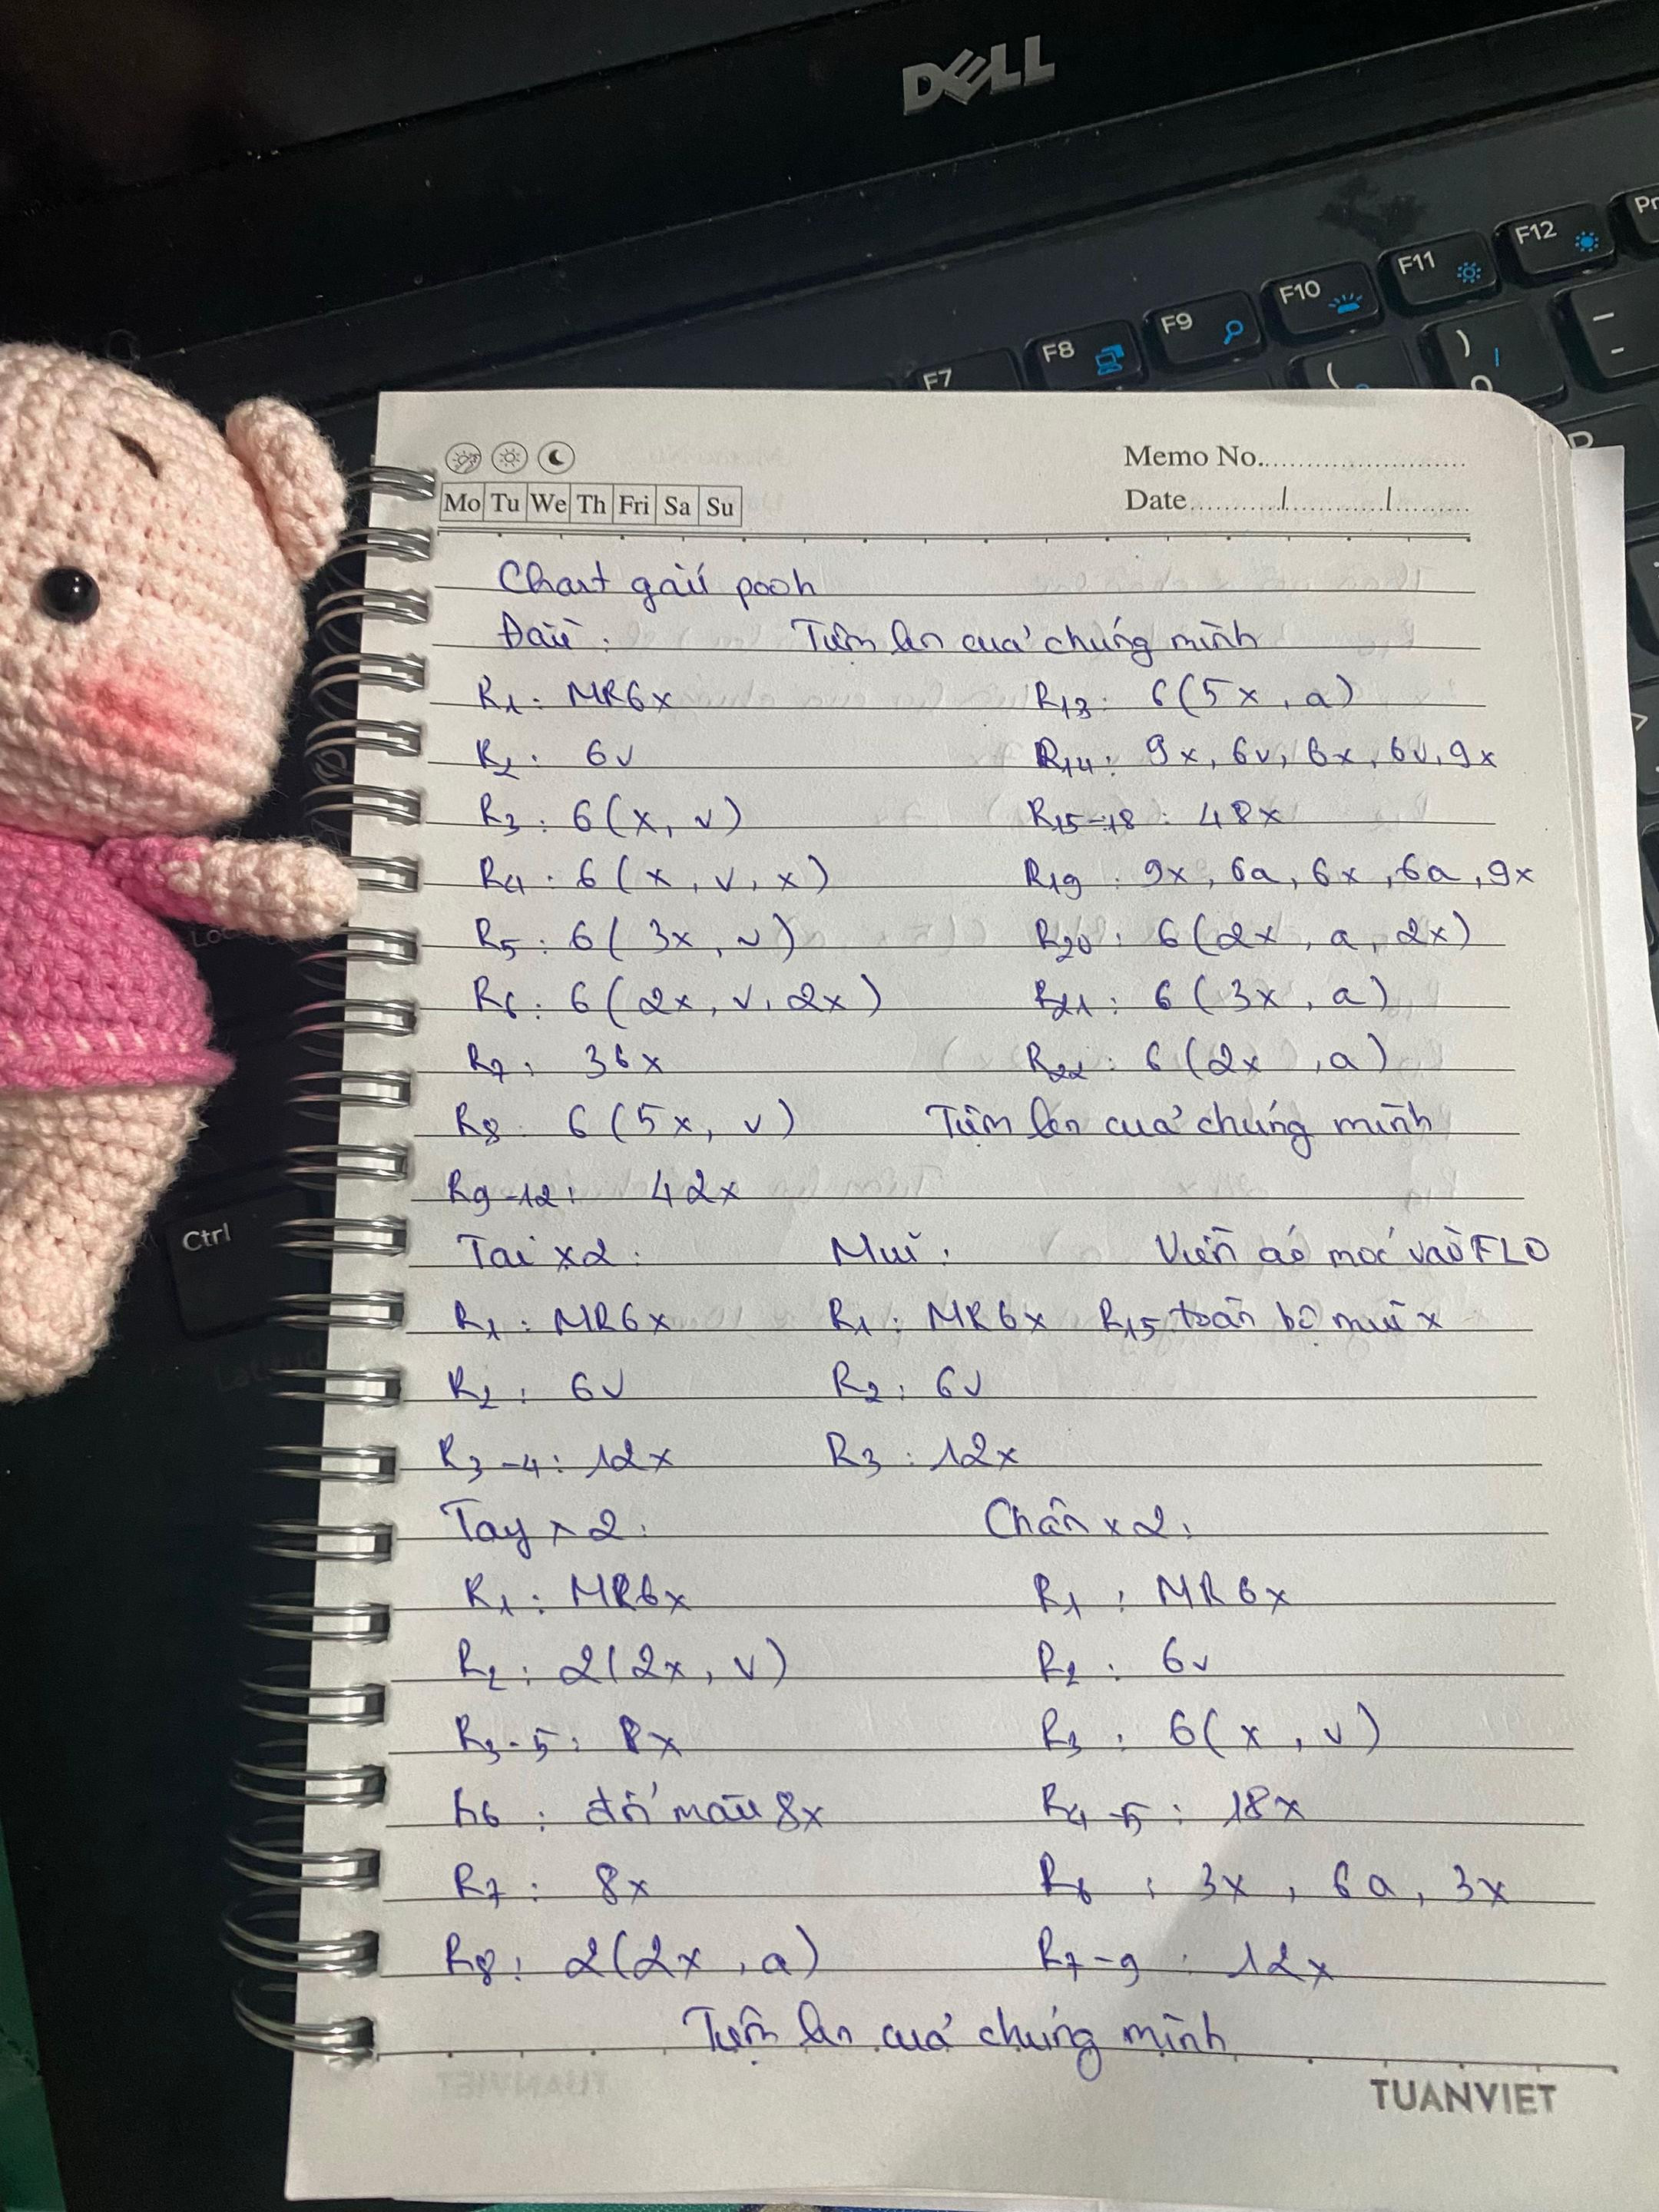 DELL
F7 F8 F9 F10 F11 F12
Ctrl
Memo No.
Date / /
Mo Tu We Th Fri Sa Su
Chart gấu pooh
Đầu: Tiệm len của chúng mình
R1: MR6x R13: 6(5x, a)
R2: 6v R14: 9x, 6v, 6x, 6v, 9x
R3: 6(x, v) R15-18: 48x
R4: 6(x, v, x) R19: 9x, 6a, 6x, 6a, 9x
R5: 6(3x, v) R20: 6(2x, a, 2x)
R6: 6(2x, v, 2x) R21: 6(3x, a)
R7: 36x R22: 6(2x, a)
R8: 6(5x, v) Tiệm len của chúng mình
R9-12: 42x
Tai x2: Mũi: Viền áo móc vào FLO
R1: MR6x R1: MR6x R15 toàn bộ mũi x
R2: 6v R2: 6v
R3-4: 12x R3: 12x
Tay x2: Chân x2:
R1: MR6x R1: MR6x
R2: 2(2x, v) R2: 6v
R3-5: 8x R3: 6(x, v)
R6: đổi màu 8x R4-5: 18x
R7: 8x R6: 3x, 6a, 3x
R8: 2(2x, a) R7-9: 12x
Tiệm len của chúng mình
TUANVIET